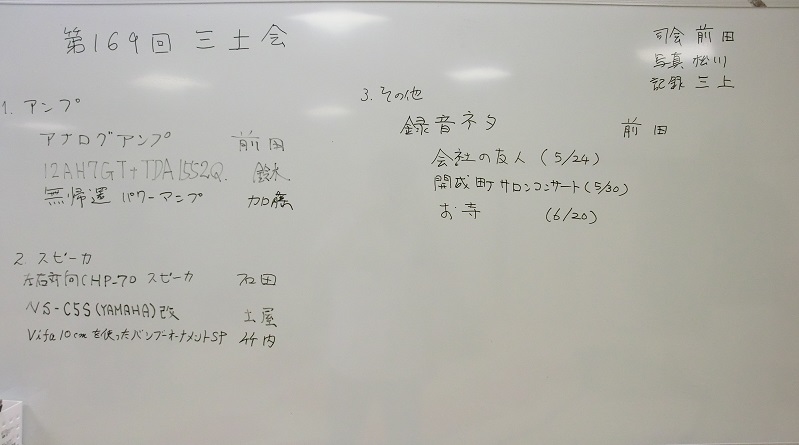 第169回 三土会
司会 前田
写真 松川
記録 三上
1. アンプ
アナログアンプ 前田
12AH7GT+TDA1552Q. 鈴木
無帰還 パワーアンプ 加藤
2. スピーカ
左右対向CHP-70 スピーカ 石田
NS-C5S(YAMAHA)改 土屋
Vifa10cmを使ったバンブーオーナメントSP 竹内
3. その他
録音ネタ 前田
会社の友人 (5/24)
開成町 サロンコンサート(5/30)
お寺 (6/20)